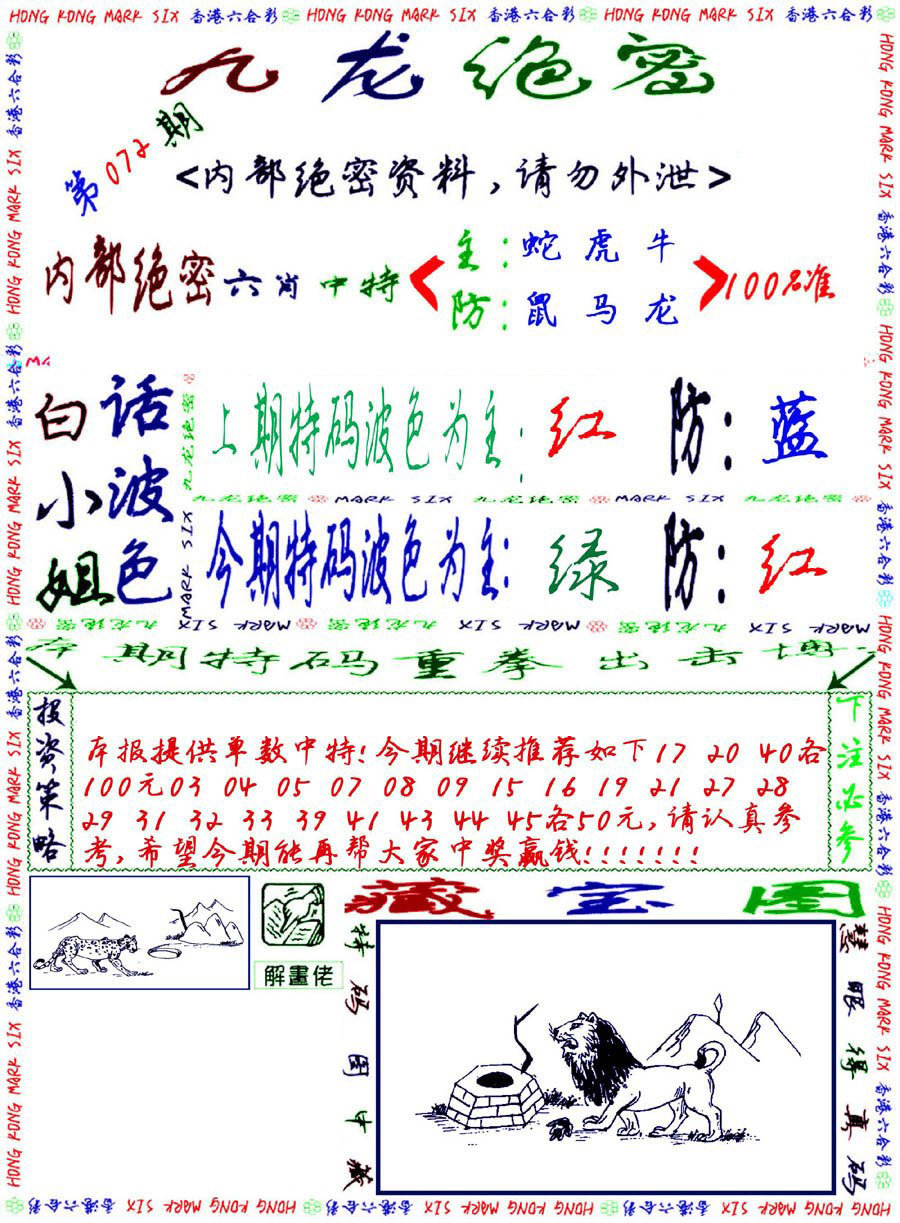 HONG KONG MARK SIX 香港六合彩 HONG KONG MARK SIX 香港六合彩 HONG KONG MARK SIX 香港六合彩
九龙绝密
第072期
<内部绝密资料,请勿外泄>
内部绝密六肖中特
主:蛇虎牛
防:鼠马龙
100%准
白话小波姐色
上期特码波色为主:红 防:蓝
九龙绝密 MARK SIX 九龙绝密 MARK SIX 九龙绝密
今期特码波色为主:绿 防:红
九龙绝密 MARK SIX 九龙绝密 MARK SIX 九龙绝密 MARK SIX
本期特码重拳出击
投资策略
本报提供单数中特!今期继续推荐如下17 20 40各
100元03 04 05 07 08 09 15 16 19 21 27 28
29 31 32 33 39 41 43 44 45各50元,请认真参
考,希望今期能再帮大家中奖赢钱!!!!!!!
下注必参
解畫佬
藏宝图
特码图中藏
慧眼得真码
HONG KONG MARK SIX 香港六合彩 HONG KONG MARK SIX 香港六合彩 HONG KONG MARK SIX 香港六合彩